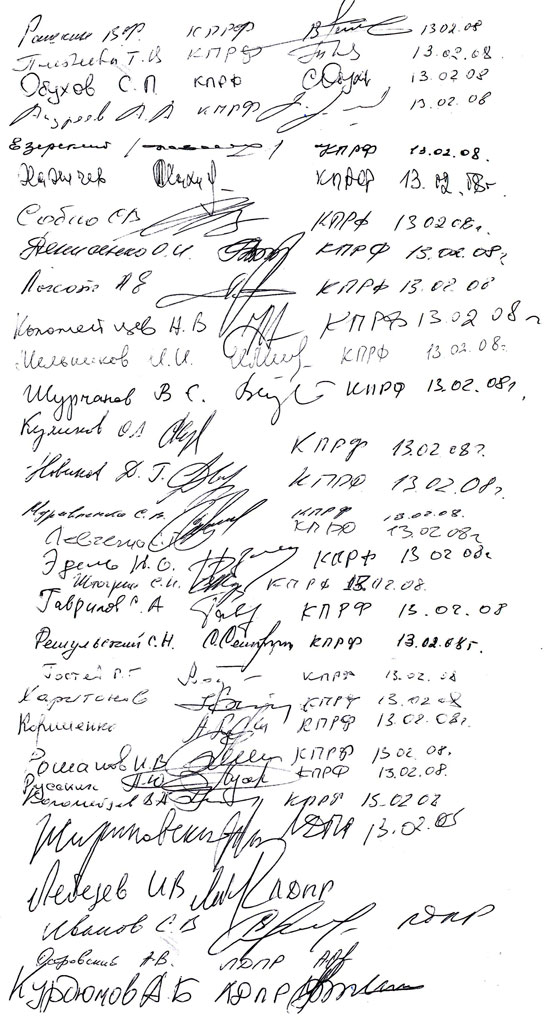 Рашкин В.Ф. КПРФ 13.02.08
Плетнева Т.В КПРФ 13.02.08.
Обухов С.П КПРФ 13.02 08
Андреев А.А КПРФ 13.02.08
Езерский КПРФ 13.02.08.
КПРФ 13.02.08г
Собко С.В КПРФ 13 02 08г.
Денисенко О.И. КПРФ 13.02.08г
Локоть А Е КПРФ 13.02.08
Коломейцев Н.В КПРФ 13.02 08г
Мельников И.И. КПРФ 13.02.08г.
Шурчанов В С. КПРФ 13.02.08г,
Куликов О А КПРФ 13.02 08г.
Новиков Д.Г. КПРФ 13.02.08г.
Муравленко С.П. КПРФ 13.02.08.
Левченко С.Г КПРФ 13.02 08г
Эдель И.О. КПРФ 13 02 08г
Штогрин С.И. КПРФ 13.02.08.
Гаврилов С. А КПРФ 13.02.08
Решульский С.Н. КПРФ 13.02.08г.
Гостев Р.Г КПРФ 13.02 08
Харитонов КПРФ 13.02 08
Корниенко КПРФ 13.02.08г.
Романов П.В КПРФ 13.02 08.
КПРФ 13.02.08.
Коломейцев В.А КПРФ 13.02 08
Жириновский ЛДПР 13.02.08
Лебедев И В ЛДПР
Иванов С.В ЛДПР
Островский А.В. ЛДПР
Курдюмов А Б ЛДПР